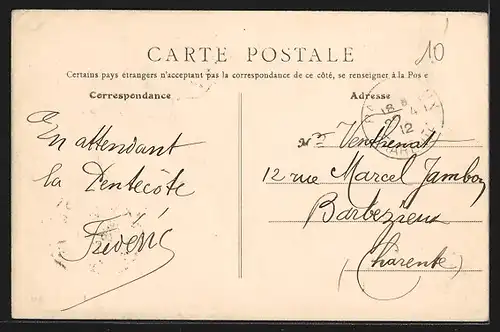 10
CARTE POSTALE
Certains pays étrangers n'acceptant pas la correspondance de ce côté, se renseigner à la Pos e
Correspondance
Adresse
18 4
12
En attendant
la Pentecôte
Mr Venthenat
12 rue Marcel Jambon
Barbezieux
(Charente)